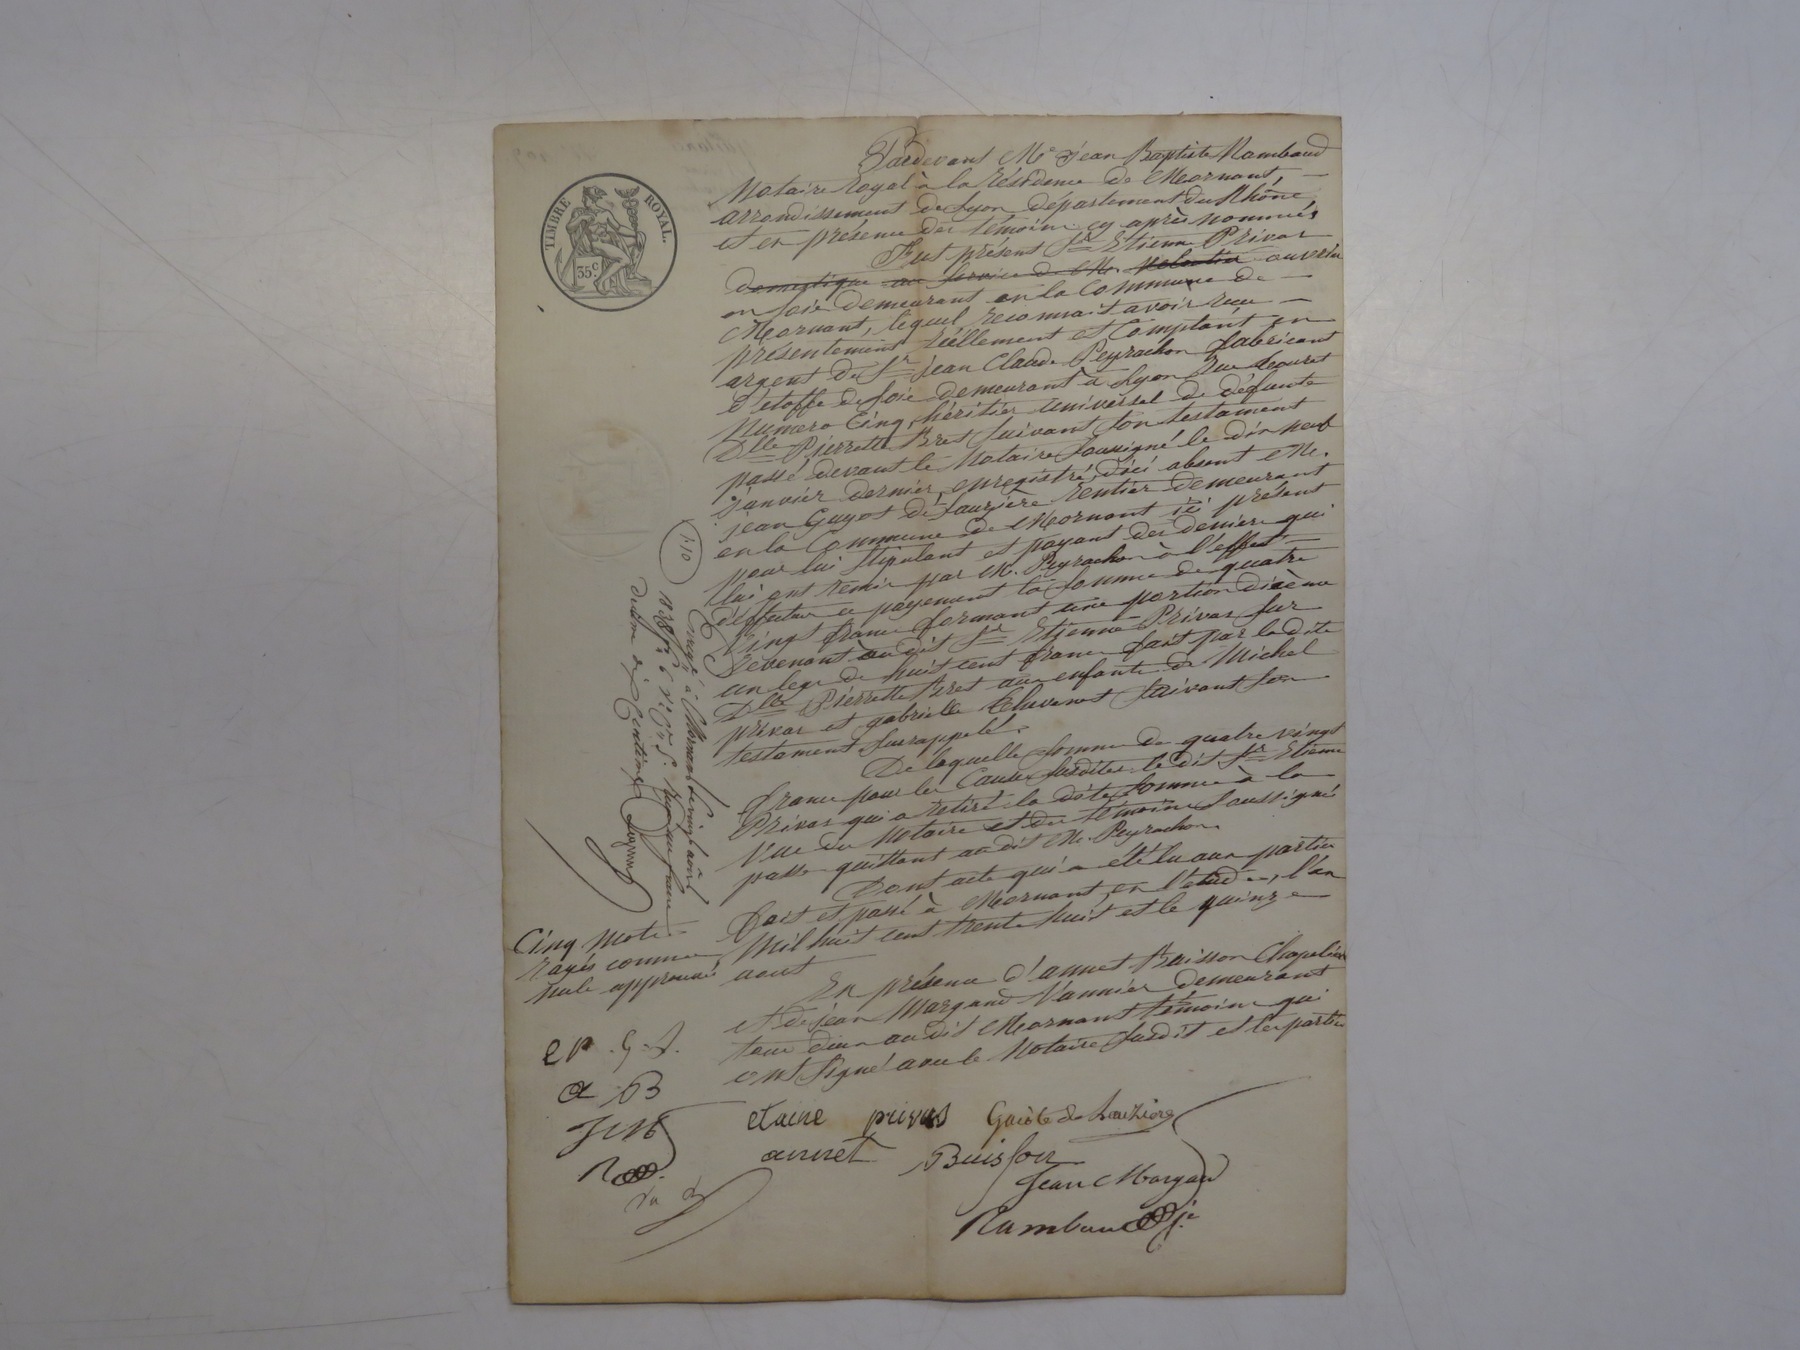 TIMBRE ROYAL.
35 c.
Pardevant Me Jean Baptiste Rambaud
Notaire Royal à la résidence de Mornant,
arrondissement de Lyon département du Rhône
et en présence des témoins cy après nommés
Fut présent Sr Etienne Privas
domestique au service de M. ouvrier
en soie demeurant en la Commune de
Mornant, lequel reconnait avoir reçu
présentement réellement et Comptant en
argent de Sr jean Claude Peyrachon fabricant
d'étoffe de soie demeurant à Lyon rue
Numero Cinq, héritier universel de défunte
Dlle Pierrette Bret suivant son testament
passé devant le Notaire soussigné le dix neuf
janvier dernier, enregistré, d'ici absent M.
jean Guyot de Lauzière rentier demeurant
en la Commune de Mornant ici présent
pour lui stipulant et payant des deniers qui
lui ont remis par M. Peyrachon à l'effet
d'effectuer ce payement la somme de quatre
vingt francs formant une portion dixième
revenant au dit Sr Etienne Privas sur
un legs de huit cent francs fait par la dite
Dlle Pierrette Bret aux enfants de Michel
privas et gabrielle Thevenet suivant son
testament susrappelé.
De laquelle somme de quatre vingt
francs pour les Causes susdites le dit Sr Etienne
Privas qui a retiré la dite somme à la
Vue du Notaire et des témoins soussignés
passe quittant au dit M. Peyrachon.
Dont acte qui a été lu aux parties
fait et passé à Mornant, en l'étude, l'an
Mil huit cent trente huit et le quinze
aout
En présence d'annet Buisson Chapelier
et de jean Margand Vannier demeurant
tous deux au dit Mornant témoins qui
ont signé avec le Notaire susdit et les parties
1.10
Enregé à Mornant le vingt aout
1838 fo 6 Reçu un franc
dixième dix Centimes
Cinq mots
rayés comme
nuls approuvés
e P. G. L.
a B
J M
R
etaine privas Guiote de Lauzière
annet Buisson
Jean Margand
Rambaud